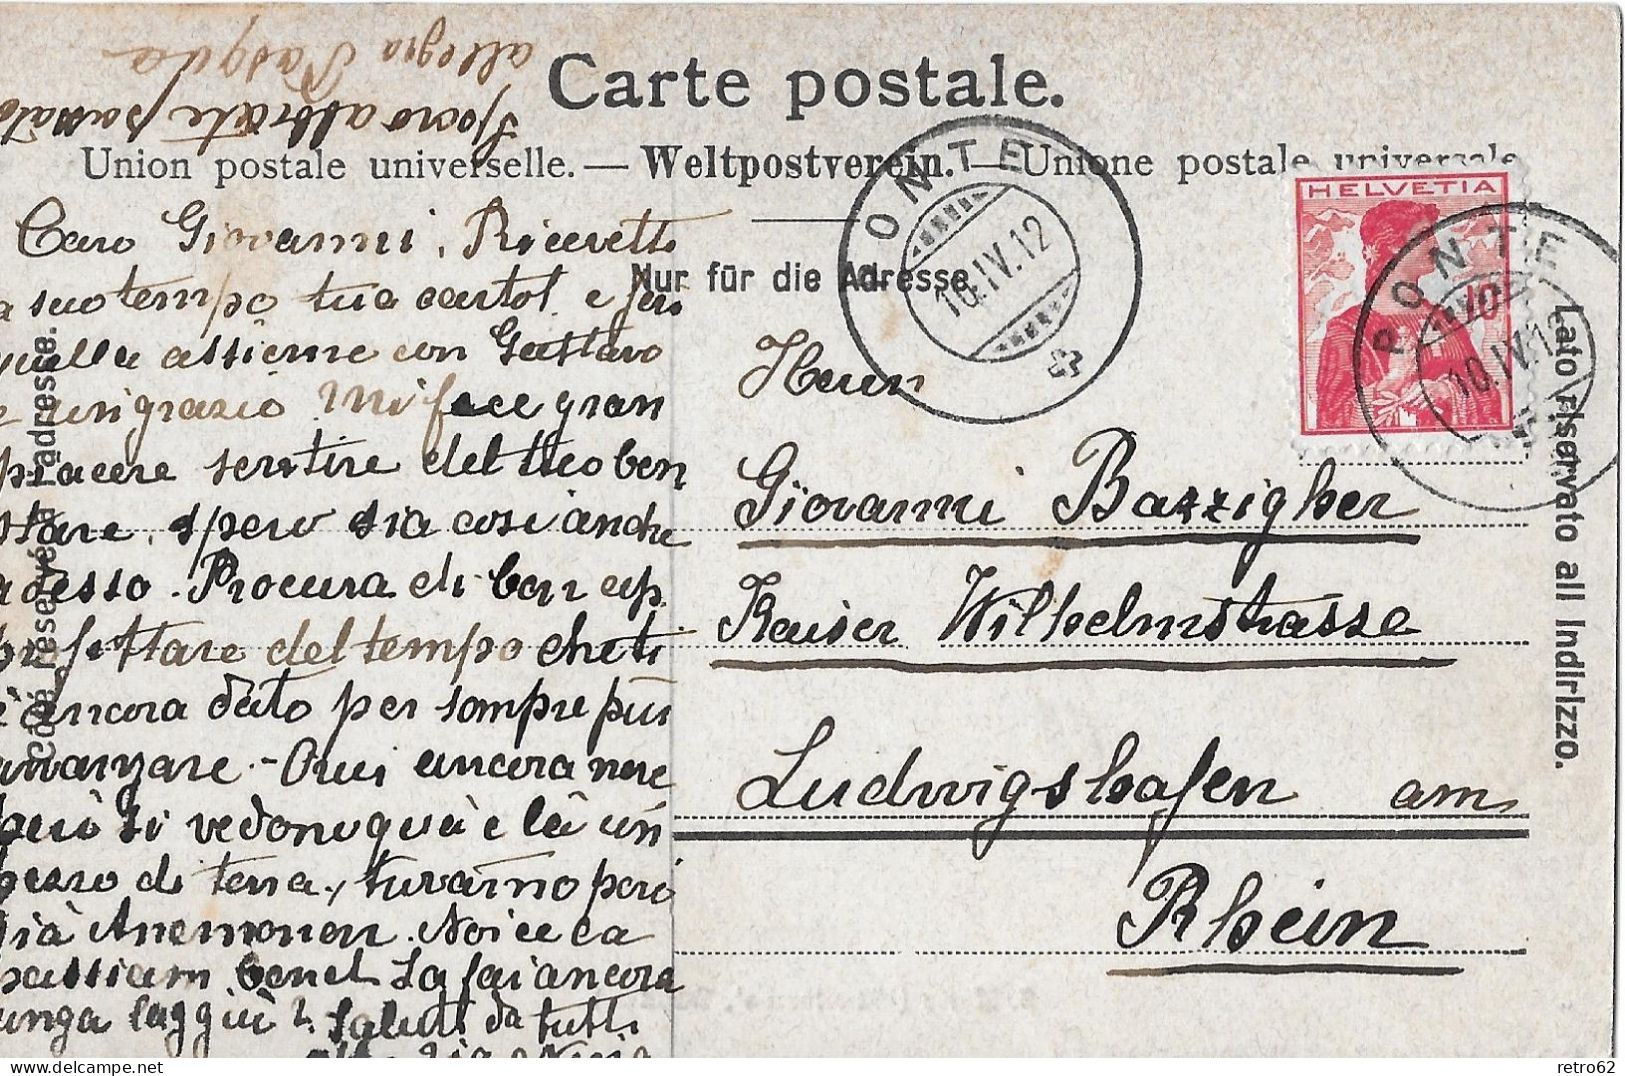 allegra Pasqua
Spero abbiate passato
Carte postale.
Union postale universelle. — Weltpostverein. — Unione postale universale
Nur für die Adresse
Côté réservé à l'adresse.
Lato riservato all indirizzo.
HELVETIA
10
PONTE
10.IV.12
PONTE
10.IV.12
Caro Giovanni, Ricevetti
a suo tempo tua cartol. e poi
quella assieme con Gustavo
e ringrazio Mi fece gran
piacere sentire del tuo ben
stare, spero sia cosi anche
adesso. Procura di ben ap
profittare del tempo che ti
è ancora dato per sempre più
avanzare. - Qui ancora neve
però si vedono quà e là un
pezzo di terra, turarno però
già Anemonen. Noi ce la
passiam benet. La fai ancora
lunga laggiù? Saluti da tutti
Herrn
Giovanni Bazzigher
Kaiser Wilhelmstrasse
Ludwigshafen am
Rhein
retro62